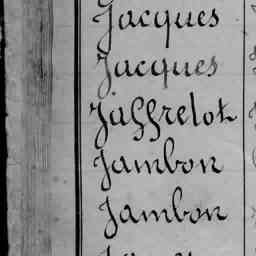 Jacques
Jacques
Jaffrelot
Jambon
Jambon